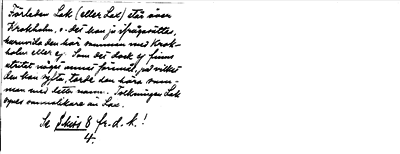 Förleden Lak (eller Lax) etas över
Krokholm, o. det kan ju ifrågasättas,
huruvida den hör samman med Krok-
holm eller ej. Som det dock ej finns
utritat något annat föremål, på vilket
den kan syfta, torde den höra sam-
man med detta namn. Tolkningen Lak
synes sannolikare än Lax.
Se 8 fr. d. k.!
4.